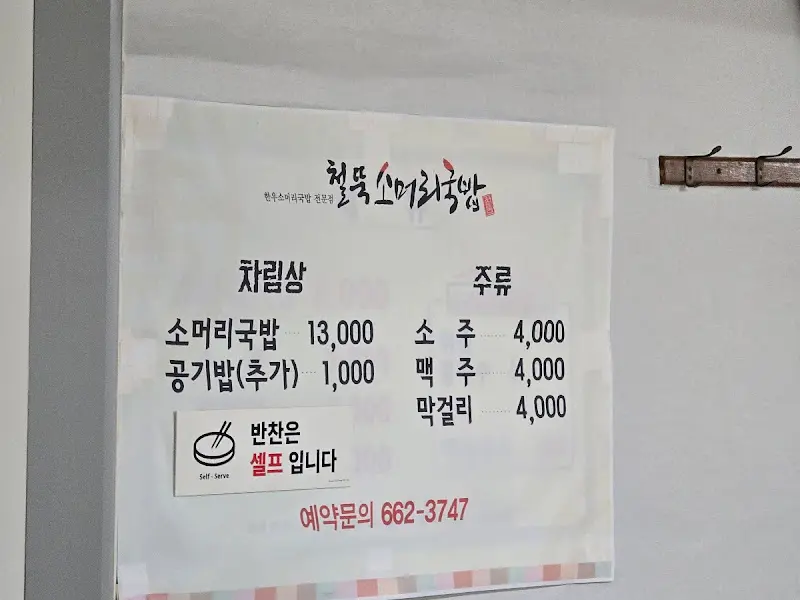 한우소머리국밥 전문점 철뚝소머리국밥
차림상
소머리국밥 13,000
공기밥(추가) 1,000
주류
소 주 4,000
맥 주 4,000
막걸리 4,000
반찬은
셀프 입니다
Self - Serve
예약문의 662-3747